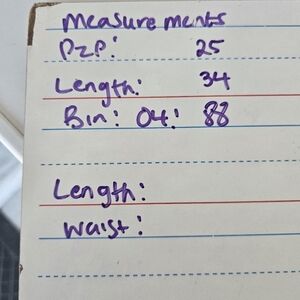 measurements
P2P: 25
Length: 34
Bin: 04: 88
Length:
waist: